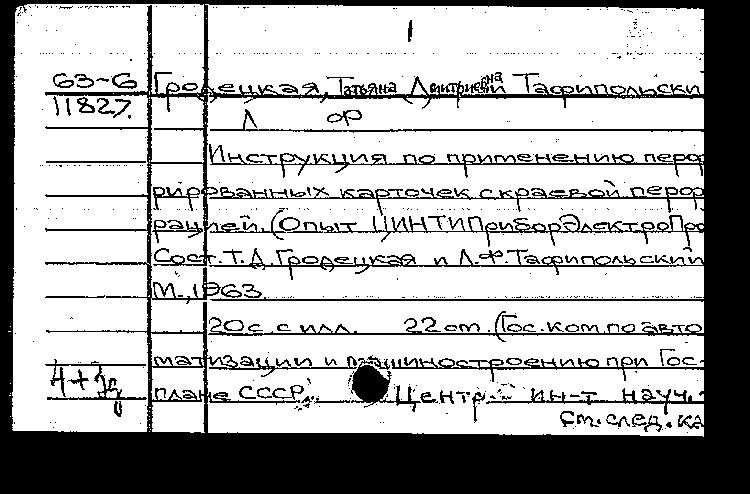 1
63-6 Гродецкая, Татьяна Дмитриевна Тафипольски
11827. Л ор
Инструкция по применению перфо
рированных карточек с краевой перфо
рацией. (Опыт ЦИНТИПриборЭлектроПро
Сост. Т.Д. Гродецкая и Л.Ф. Тафипольский
М., 1963.
20 с. с илл. 22 cm. (Гос. ком. по авто
матизации и машиностроению при Гос-
4+1д плане СССР. Центр. ин-т науч.-
См. след. ка